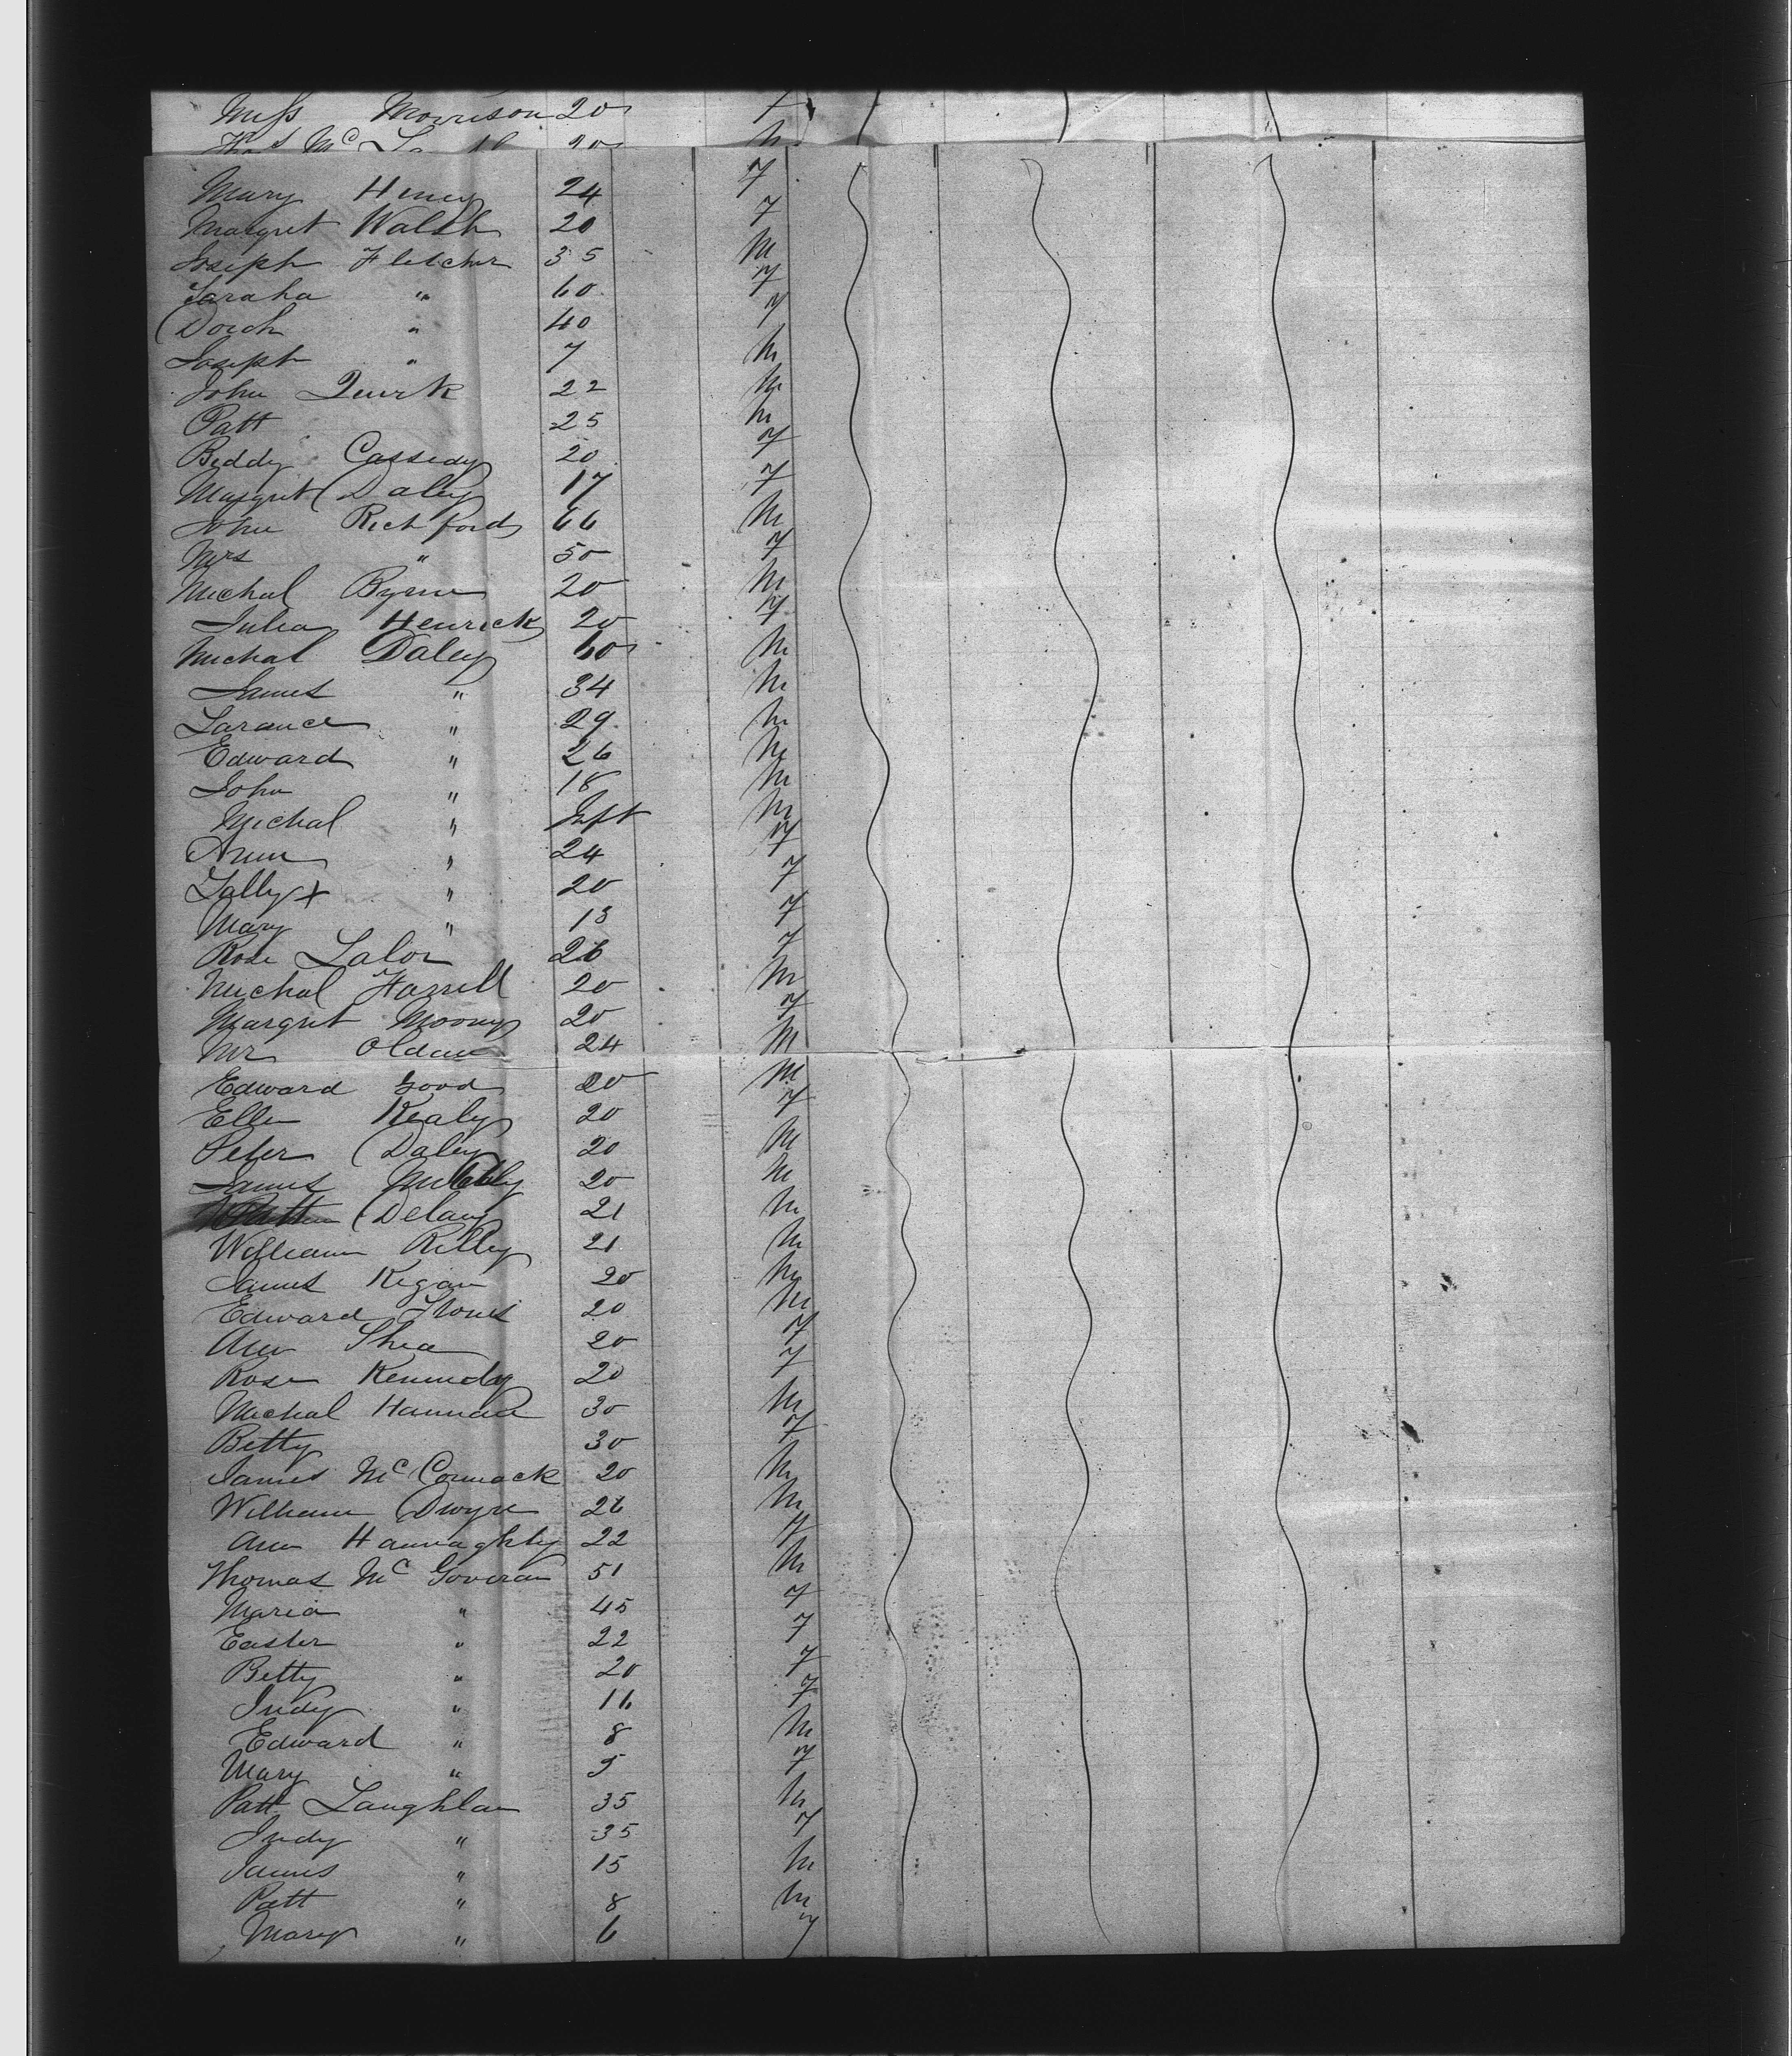 Miss Morrison 20 F
Thos Mc 20 M
Mary Henry 24 F
Margret Walsh 20 F
Joseph Fletcher 35 M
Saraha " 60 F
Dorch " 40 F
Joseph " 7 M
John Quirk 22 M
Patt 25 M
Biddy Cassedy 20 F
Margret Daley 17 F
John Richford 66 M
Mrs " 50 F
Michal Byrne 20 M
Julia Henrick 20 F
Michal Daley 60 M
James " 34 M
Larance " 29 M
Edward " 26 M
John " 18 M
Michal " Inft M
Ann " 24 F
Sally x " 20 F
Mary " 13 F
Rose Lalor 26 F
Michal Farrell 20 M
Margret Moony 20 F
Mr 24 M
Edward Good 20 M
Ellen Kealy 20 F
Peter Daley 20 M
James 20 M
Delany 21 M
William Rilly 21 M
James Kegan 20 M
Edward 20 M
Ann Shea 20 F
Rose Kennedy 20 F
Michal Hannan 30 M
Betty 30 F
James Mc Cormack 20 M
William Dwyre 26 M
Ann Hannaghty 22 F
Thomas Mc Goveran 51 M
Maria " 45 F
Easter " 22 F
Betty " 20 F
Judy " 16 F
Edward " 8 M
Mary " 5 F
Patt Laughlan 35 M
Judy " 35 F
James " 15 M
Patt " 8 M
Mary " 6 F